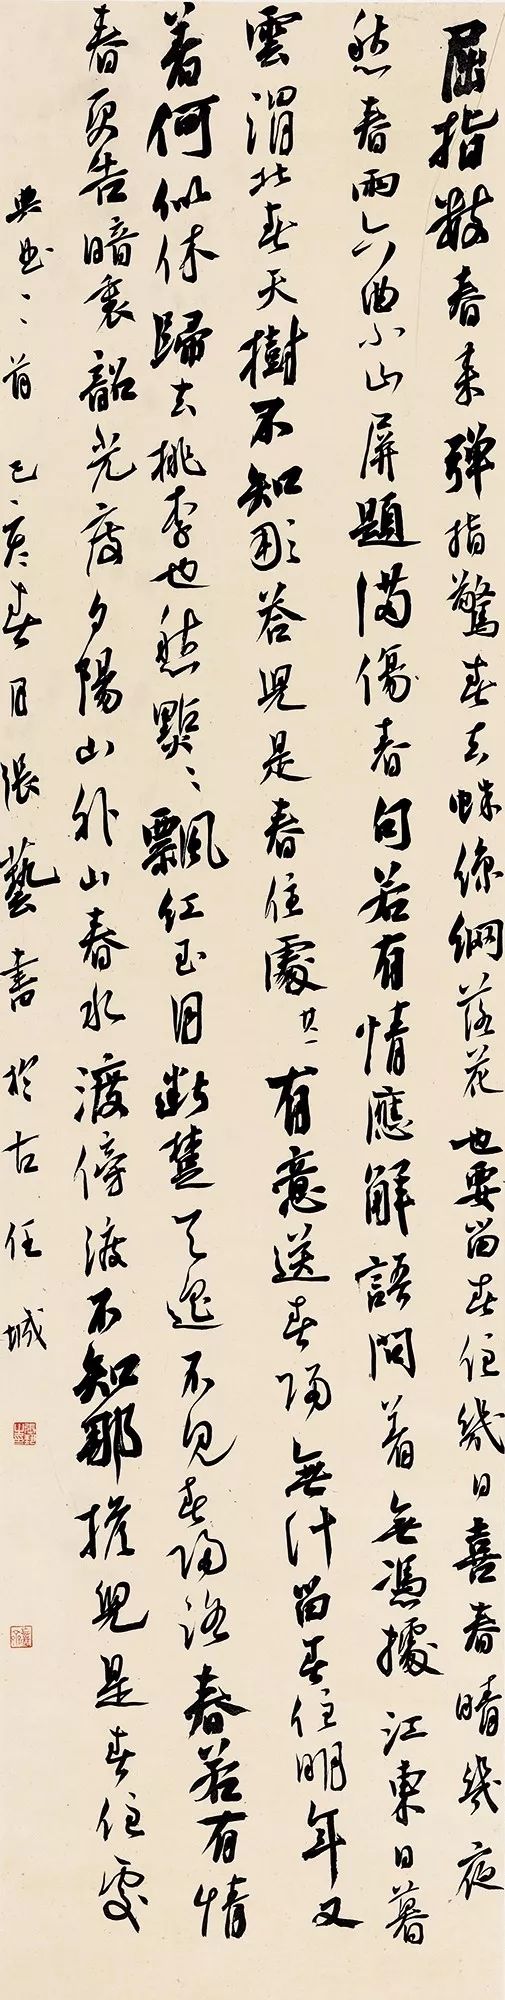 屈指數春來彈指驚春去蛛絲網落花也要留春住幾日喜春晴幾夜
愁春雨六曲小山屏題滿傷春句若有情應解語問著無憑據江東日暮
雲渭北春天樹不知那荅兒是春住處其二有意送春歸無計留春住明年又
著何似休歸去桃李也愁點點飄紅玉目斷楚天遙不見春歸路春若有情
春更苦暗裏韶光度夕陽山外山春水渡傍渡不知那搭兒是春住處
曲二首 己亥春日張藝書於古任城